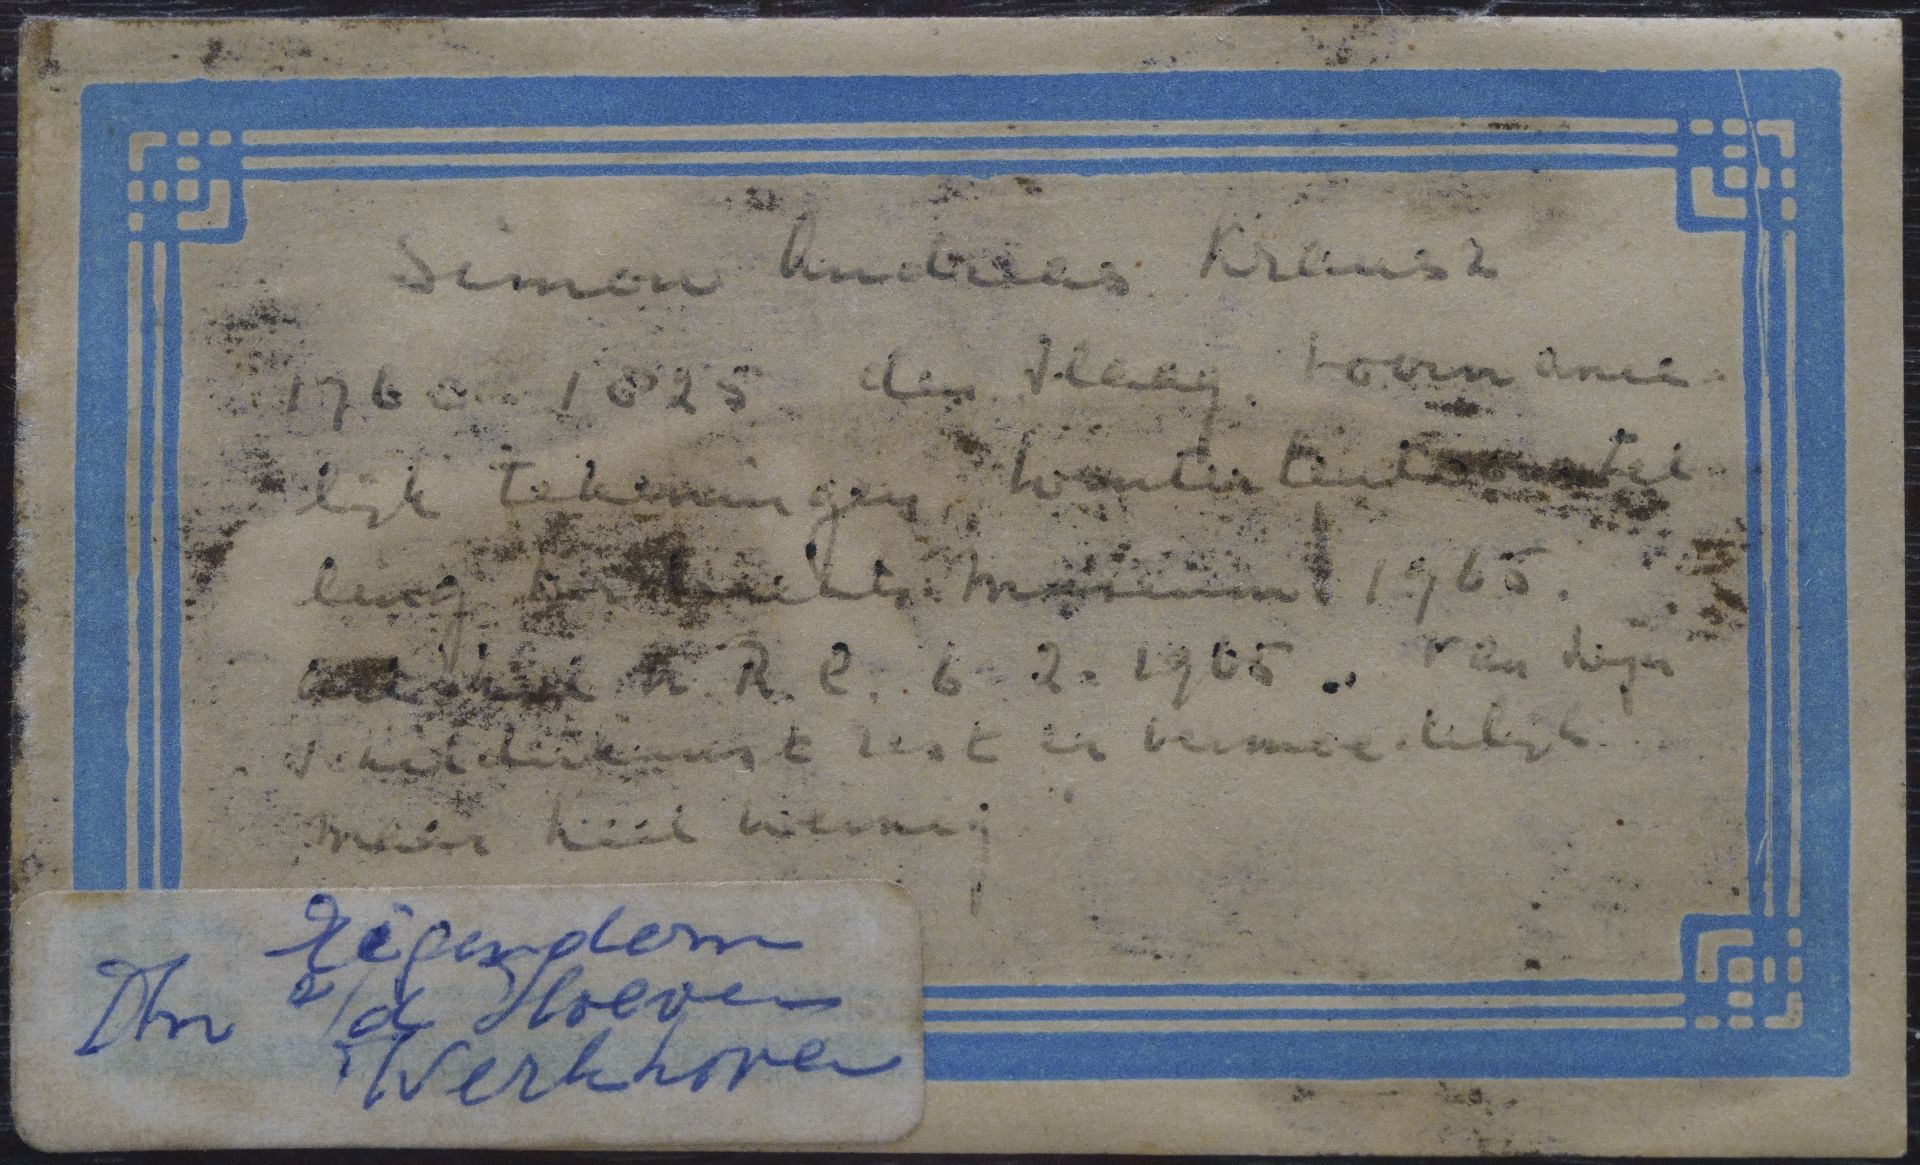 Simon Andreas Krausz
1760 - 1825 den Haag. voornamelijk
lijk tekeningen, wintertentoonstel
ling Dordrechts Museum 1965.
artikel N.R.C. 6-2-1965. van zijn
schilderkunst rest er vermoedelijk
maar heel weinig
Eigendom
Dhr v/d Hoeven
Werkhoven